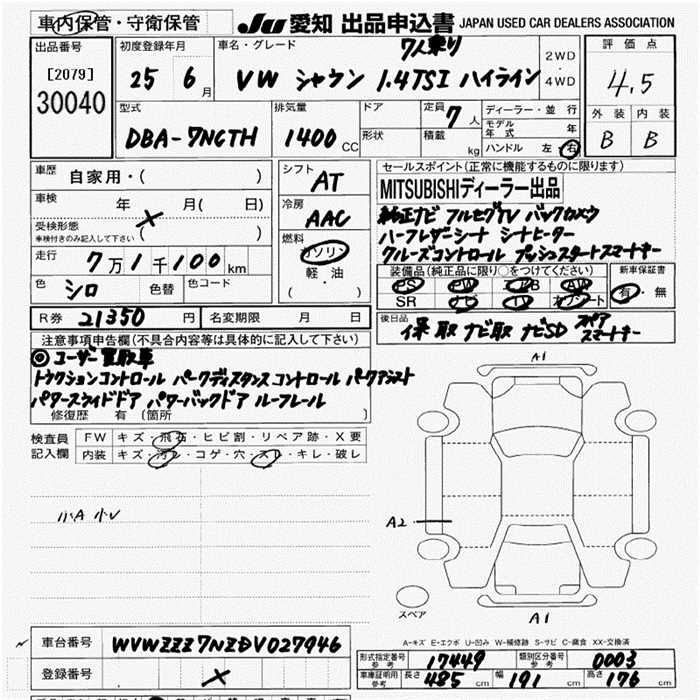 車内保管・守衛保管
JU 愛知 出品申込書 JAPAN USED CAR DEALERS ASSOCIATION
出品番号
[2079]
30040
初度登録年月
25 6月
車名・グレード
7人乗り
VW シャラン 1.4TSI ハイライン
2WD・4WD
評価点
4.5
外装 内装
B B
型式
DBA-7NCTH
排気量
1400CC
ドア
形状
定員 7人
積載 kg
ディーラー・並行
モデル年式 年
ハンドル 左 右
車歴 自家用・( )
車検 年 月( 日)
受検形態
※検付きのみ記入して下さい ( )
走行 7万1千100km
色 シロ 色替 色コード
シフト AT
冷房 AAC
燃料
ガソリン
軽・油
( ・ )
セールスポイント(正常に機能するものに限ります)
MITSUBISHIディーラー出品
純正ナビ フルセグTV バックカメラ
ハーフレザーシート シートヒーター
クルーズコントロール プッシュスタートスマートキー
装備品(純正品に限り○をつけてください)
PS PW AB AW
SR ナビ TV カワシート
新車保証書
有・無
R券 21350円 名変期限 月 日
後日品 保 取 ナビ取 ナビSD スペア スマートキー
注意事項申告欄(不具合内容等は具体的に記入して下さい)
◎ユーザー買取車
トラクションコントロール パークディスタンスコントロール パークアシスト
パワースライドドア パワーバックドア ルーフレール
修復歴 有 〔箇所 〕
検査員記入欄
FW キズ・飛石・ヒビ割・リペア跡・X要
内装 キズ・汚レ・コゲ・穴・スレ・キレ・破レ
小A 小V
A1
A2
スペア
A1
A-キズ E-エクボ U-凹み W-補修跡 S-サビ C-腐食 XX-交換済
車台番号 WVWZZZ7NZDV027946
登録番号
形式指定番号 参考 17449 類別区分番号 参考 0003
車庫証明用 参考 長さ 485cm 幅 191cm 高さ 176cm